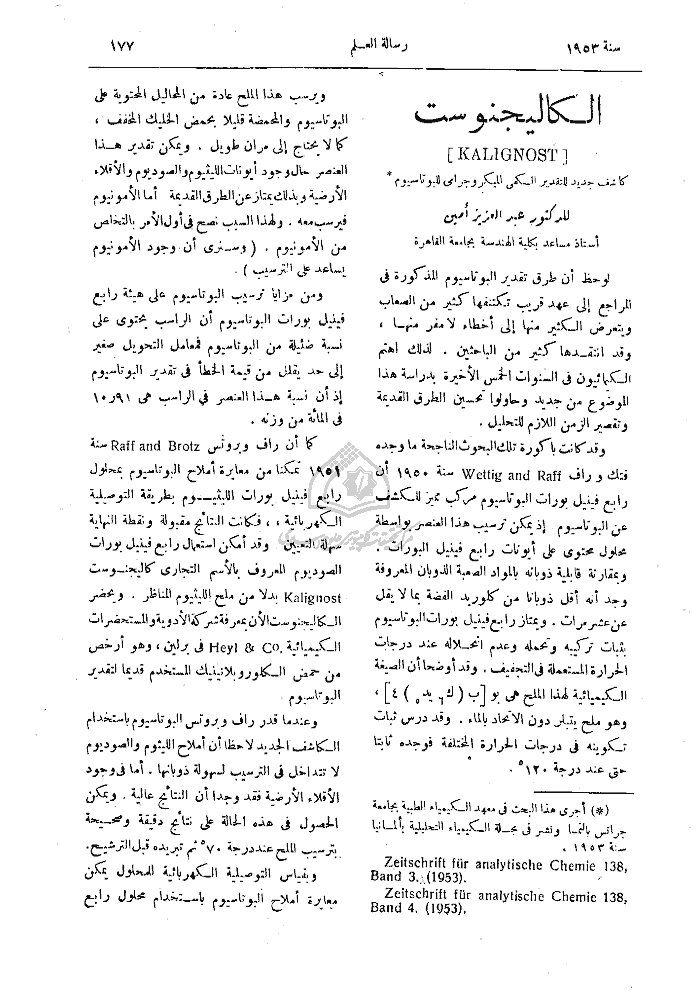 سنة ١٩٥٣
رسالة العلم
١٧٧
الكاليجنوست
[ KALIGNOST ]
كاشف جديد للتقدير الكمى الميكروجرامى للبوتاسيوم *
للدكتور عبد العزيز أمين
أستاذ مساعد بكلية الهندسة بجامعة القاهرة
لوحظ أن طرق تقدير البوتاسيوم المذكورة فى
المراجع إلى عهد قريب تكتنفها كثير من الصعاب
ويتعرض الكثير منها إلى أخطاء لا مفر منها ،
وقد انتقدها كثير من الباحثين . لذلك اهتم
الكيمائيون فى السنوات الخمس الأخيرة بدراسة هذا
الموضوع من جديد وحاولوا تحسين الطرق القديمة
وتقصير الزمن اللازم للتحليل .
وقد كانت باكورة تلك البحوث الناجحة ما وجده
فتك و راف Wettig and Raff سنة ١٩٥٠ أن
رابع فينيل بورات البوتاسيوم مركب مميز للكشف
عن البوتاسيوم إذ يمكن ترسيب هذا العنصر بواسطة
محلول محتوى على أيونات رابع فينيل البورات .
وبمقارنة قابلية ذوبانه بالمواد الصعبة الذوبان المعروفة
وجد أنه أقل ذوبانا من كلوريد الفضة بما لا يقل
عن عشر مرات . ويمتاز رابع فينيل بورات البوتاسيوم
بثبات تركيبه وتحمله وعدم انحلاله عند درجات
الحرارة المستعملة فى التجفيف . وقد أوضحا أن الصيغة
الكيميائية لهذا الملح هى بو [ ب ( ك٦ يد٥ ) ٤ ] ،
وهو ملح يتبلر دون الاتحاد بالماء . وقد درس ثبات
تكوينه فى درجات الحرارة المختلفة فوجده ثابتا
حتى عند درجة ١٢٠° .
(*) أجرى هذا البحث فى معهد الكيمياء الطبية بجامعة
جراتس بالنمسا ونشر فى مجلة الكيمياء التحليلية بألمانيا
سنة ١٩٥٣ .
Zeitschrift für analytische Chemie 138,
Band 3. (1953).
Zeitschrift für analytische Chemie 138,
Band 4. (1953).
ويرسب هذا الملح عادة من المحاليل المحتوية على
البوتاسيوم والمحمضة قليلا بحمض الخليك المخفف ،
كما لا يحتاج إلى مران طويل . ويمكن تقدير هذا
العنصر حال وجود أيونات الليثيوم والصوديوم والأقلاء
الأرضية وبذلك يمتاز عن الطرق القديمة أما الأمونيوم
فيرسب معه . ولهذا السبب نصح فى أول الأمر بالتخلص
من الأمونيوم . ( وسنرى أن وجود الأمونيوم
يساعد على الترسيب ) .
ومن مزايا ترسيب البوتاسيوم على هيئة رابع
فينيل بورات البوتاسيوم أن الراسب يحتوى على
نسبة ضئيلة من البوتاسيوم فمعامل التحويل صغير
إلى حد يقلل من قيمة الخطأ فى تقدير البوتاسيوم
إذ أن نسبة هذا العنصر فى الراسب هى ٩١ر١٠
فى المائة من وزنه .
كما أن راف وبروتس Raff and Brotz سنة
١٩٥١ تمكنا من معايرة أملاح البوتاسيوم بمحلول
رابع فينيل بورات الليثيوم بطريقة التوصيلية
الكهربائية ، ، فكانت النتائج مقبولة ونقطة النهاية
سهلة التعيين وقد أمكن استعمال رابع فينيل بورات
الصوديوم المعروف بالأسم التجارى كاليجنوست
Kalignost بدلا من ملح الليثيوم المناظر . ويحضر
الكاليجنوست الأن بمعرفة شركة الأدوية والمستحضرات
الكيميائية Heyl & Co. فى برلين ، وهو أرخص
من حمض الكلوروبلاتينيك المستخدم قديما لتقدير
البوتاسيوم
وعندما قدر راف وبروتس البوتاسيوم باستخدام
الكاشف الجديد لاحظا أن أملاح الليثوم والصوديوم
لا تتداخل فى الترسيب لسهولة ذوبانها . أما فى وجود
الأقلاء الأرضية فقد وجدا أن النتائج عالية . ويمكن
الحصول فى هذه الحالة على نتائج دقيقة وصحيحة
بترسيب الملح عند درجة ٧٠° ثم تبريده قبل الترشيح .
وبقياس التوصيلية الكهربائية للمحلول يمكن
معايرة أملاح البوتاسيوم باستخدام محلول رابع